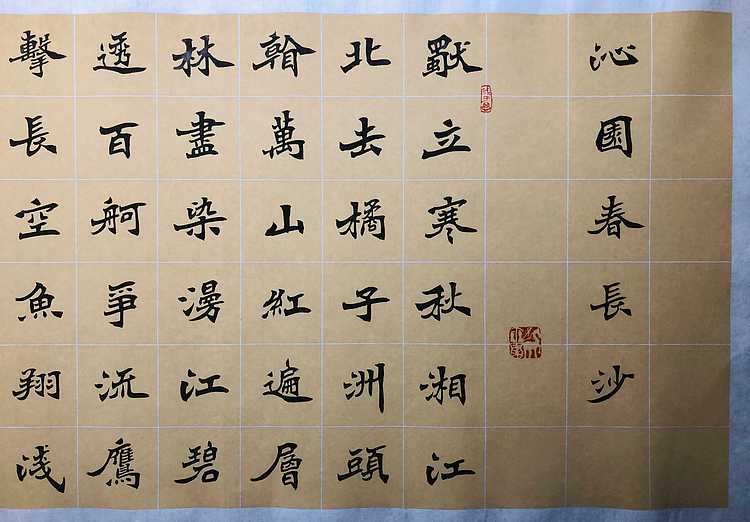 沁園春長沙
獨立寒秋湘江
北去橘子洲頭
看萬山紅遍層
林盡染漫江碧
透百舸爭流鷹
擊長空魚翔淺